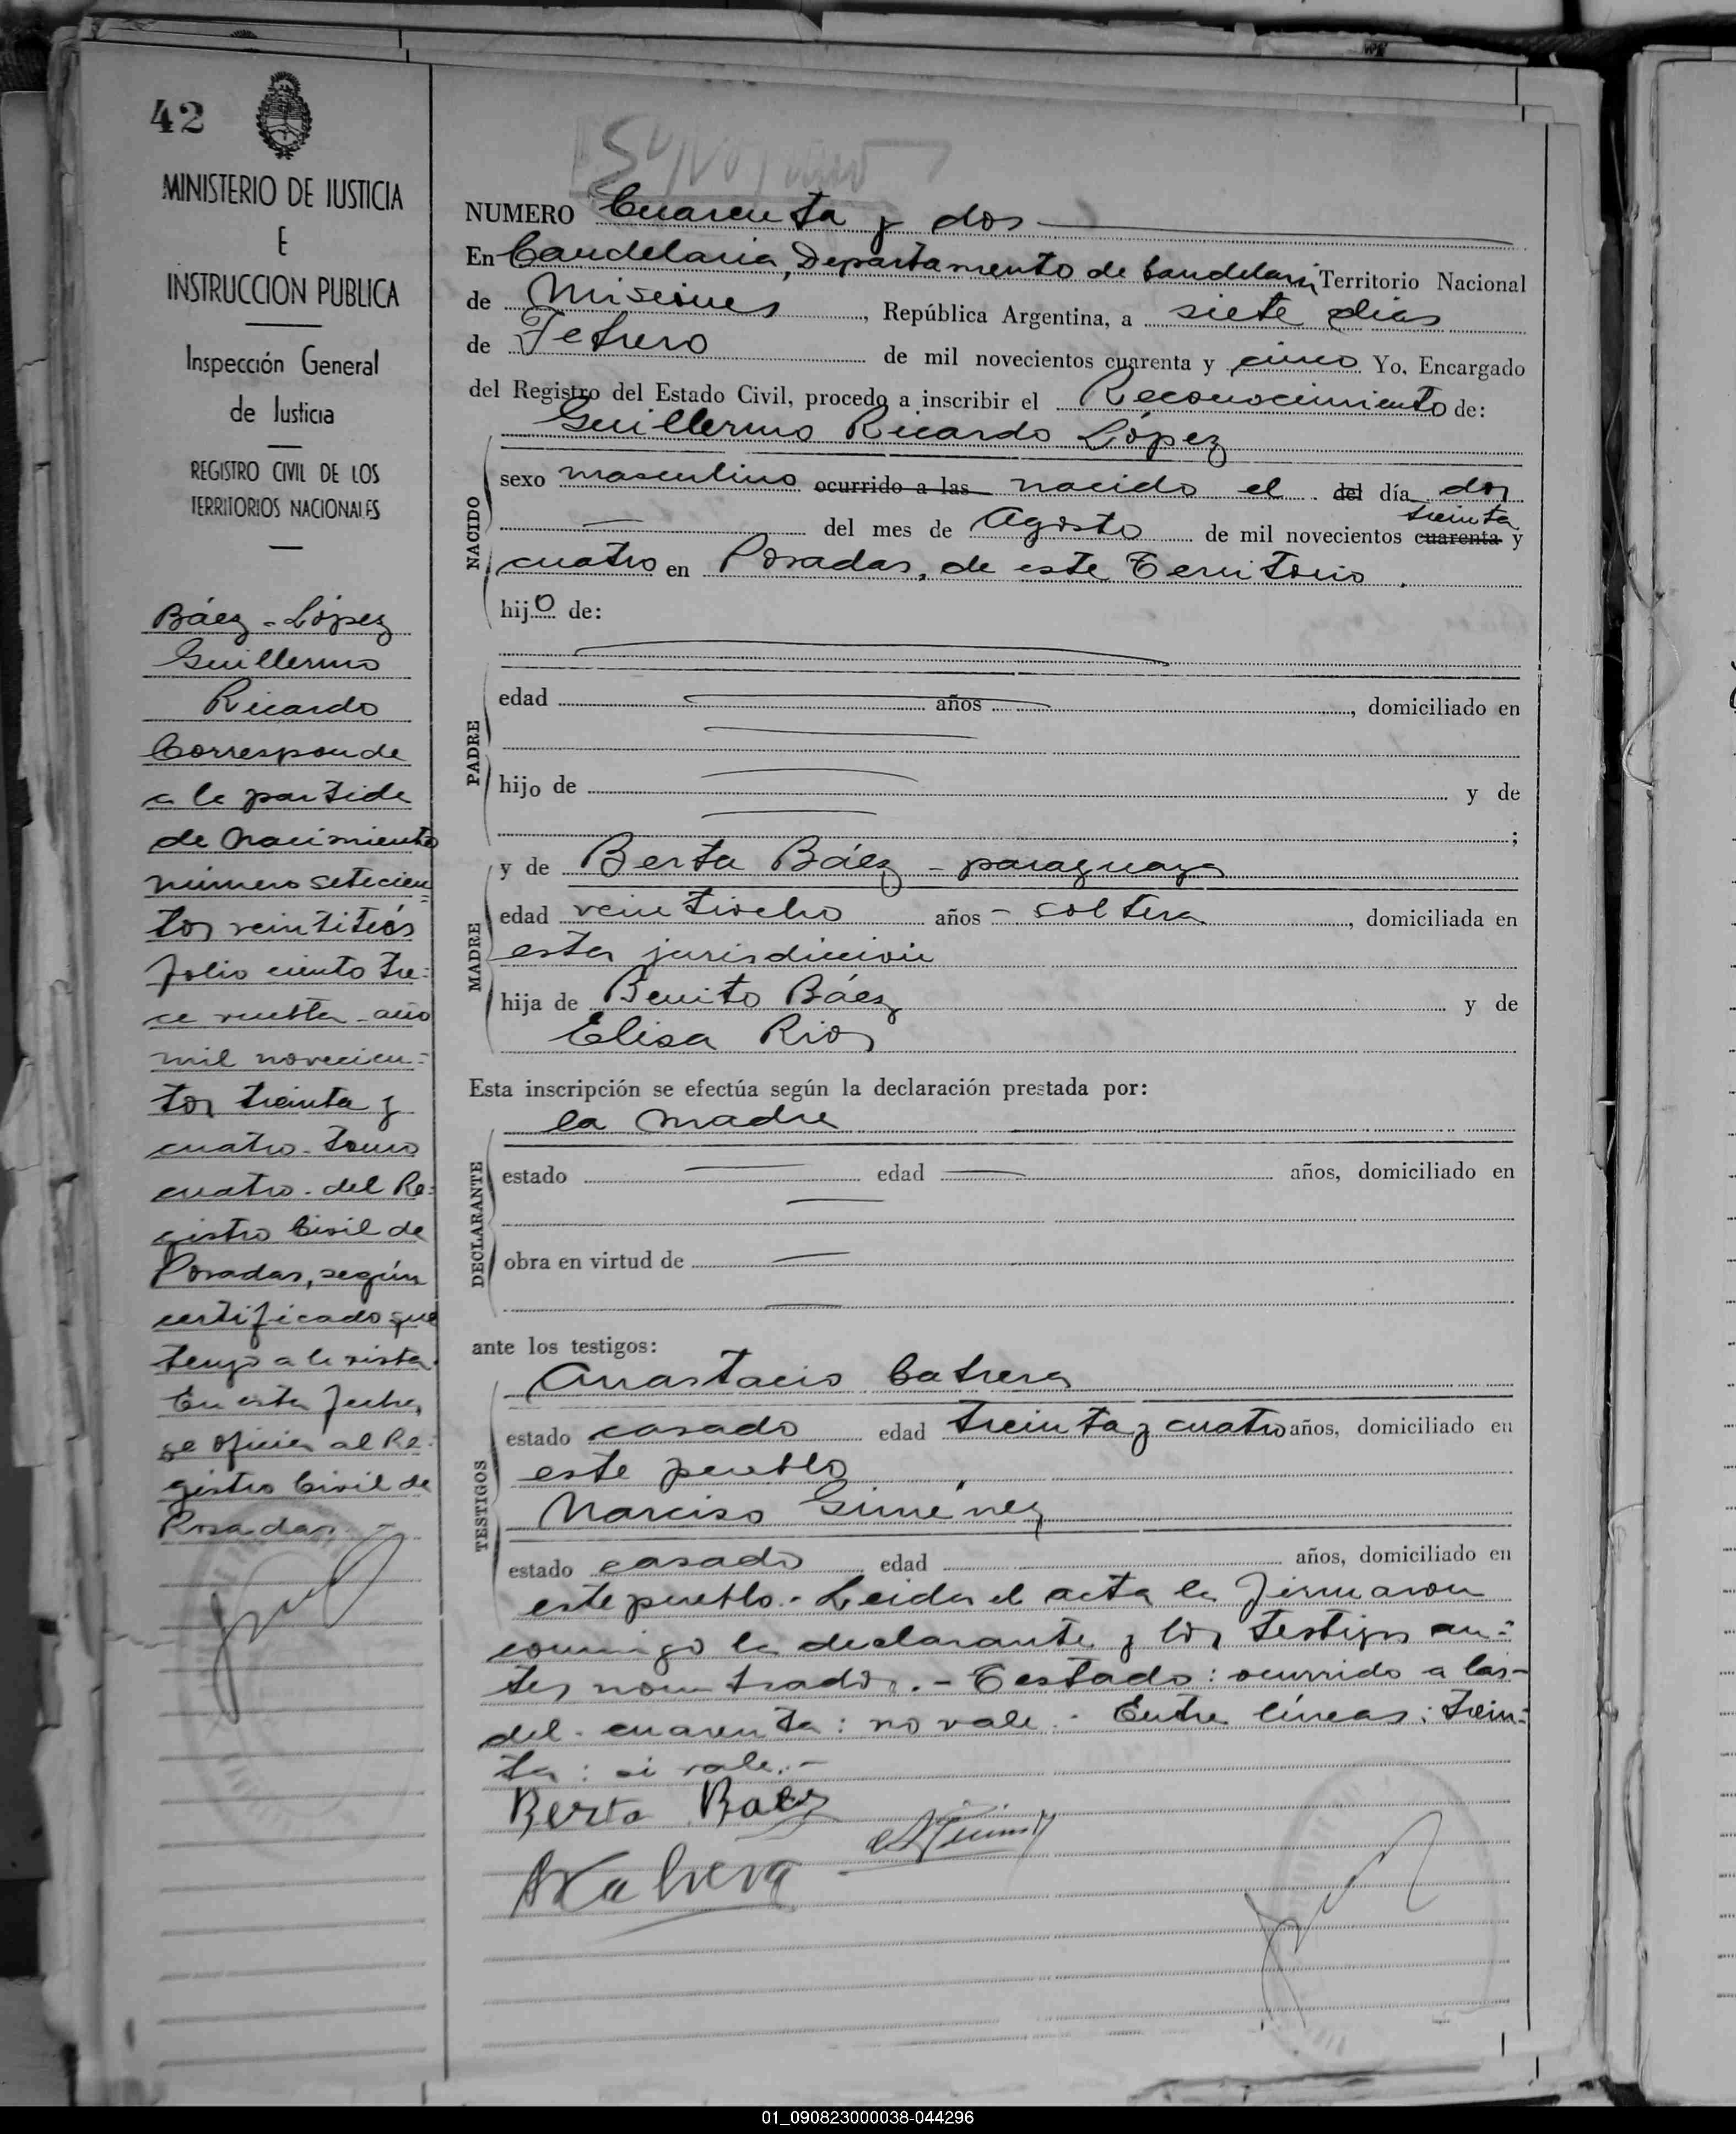 42
MINISTERIO DE JUSTICIA
E
INSTRUCCION PUBLICA
Inspección General
de Justicia
REGISTRO CIVIL DE LOS
TERRITORIOS NACIONALES
Báez - López
Guillermo
Ricardo
Corresponde
a la partida
de Nacimiento
número setecien=
tos veintitrés
folio ciento tre=
ce vuelta - año
mil novecien=
tos treinta y
cuatro - tomo
cuatro - del Re=
gistro Civil de
Posadas, según
certificado que
tengo a la vista.
En esta fecha,
se oficia al Re-
gistro Civil de
Posadas. -
NUMERO Cuarenta y dos
En Candelaria, Departamento de Candelaria, Territorio Nacional
de Misiones, República Argentina, a siete días
de Febrero de mil novecientos cuarenta y cinco Yo, Encargado
del Registro del Estado Civil, procedo a inscribir el Reconocimiento de:
Guillermo Ricardo López
NACIDO
sexo masculino ocurrido a las nacido el del día dos
treinta
del mes de Agosto de mil novecientos cuarenta y
cuatro en Posadas, de este Territorio.
hijo de:
PADRE
edad años, domiciliado en
hijo de y de
;
MADRE
y de Berta Báez - paraguaya
edad veintiocho años - soltera, domiciliada en
esta jurisdicción
hija de Benito Báez y de
Elisa Rios
Esta inscripción se efectúa según la declaración prestada por:
la madre
DECLARANTE
estado edad años, domiciliado en
obra en virtud de
ante los testigos:
TESTIGOS
Anastacio Cabrera
estado casado edad treinta y cuatro años, domiciliado en
este pueblo
Narciso Giménez
estado casado edad años, domiciliado en
este pueblo. - Leida el acta la firmaron
conmigo la declarante y los testigos an=
tes nombrados. - Testado: ocurrido a las -
del - cuarenta: no vale. - Entre líneas: trein=
ta: si vale. -
Berta Baez
ACabrera
01_090823000038-044296